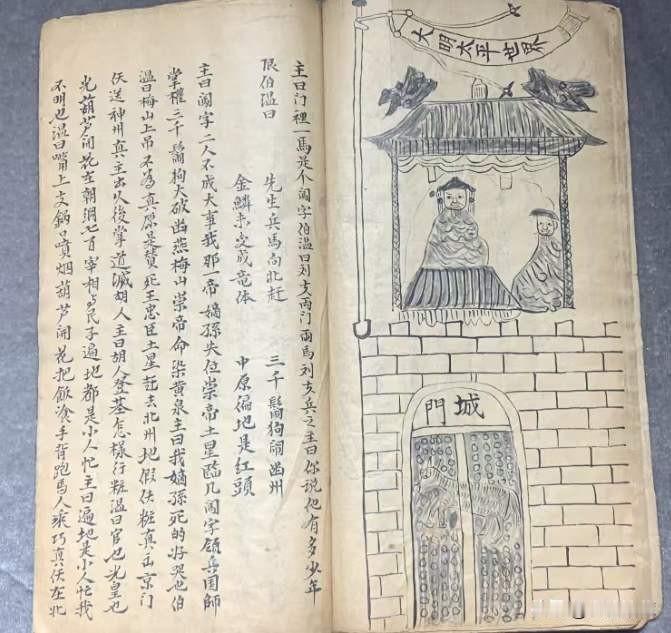 主曰门裡一馬是个闖字伯温曰刘文两门兩馬刘玄兵之主曰你説他有多少年
限伯温曰
先生兵馬向北赶 三千鬍狗闹幽州
金鱗未变成竜体 中原徧地是红頭
主曰闖字二人不成大事我那一帝嫡孫失位崇帝土星臨凡闖字領兵國師
掌權三千鬍狗大破幽燕梅山崇帝命染黄泉主曰我嫡孫死的好哭也伯
温曰梅山上吊不為真原是賛死王忠臣土星赶去北州地假伏粧真正京门
伏送神州真主出以後掌道滅胡人主曰胡人登基怎樣行粧温曰官也光皇也
光葫芦闹花在朝綱七百宰相与民子遍地都是小人忙主曰遍地是小人忙我
不明也温曰嘴上支锅口噴烟葫芦闹花把飯飡手背跑馬人乘巧真伏在北
大明太平世界
門城